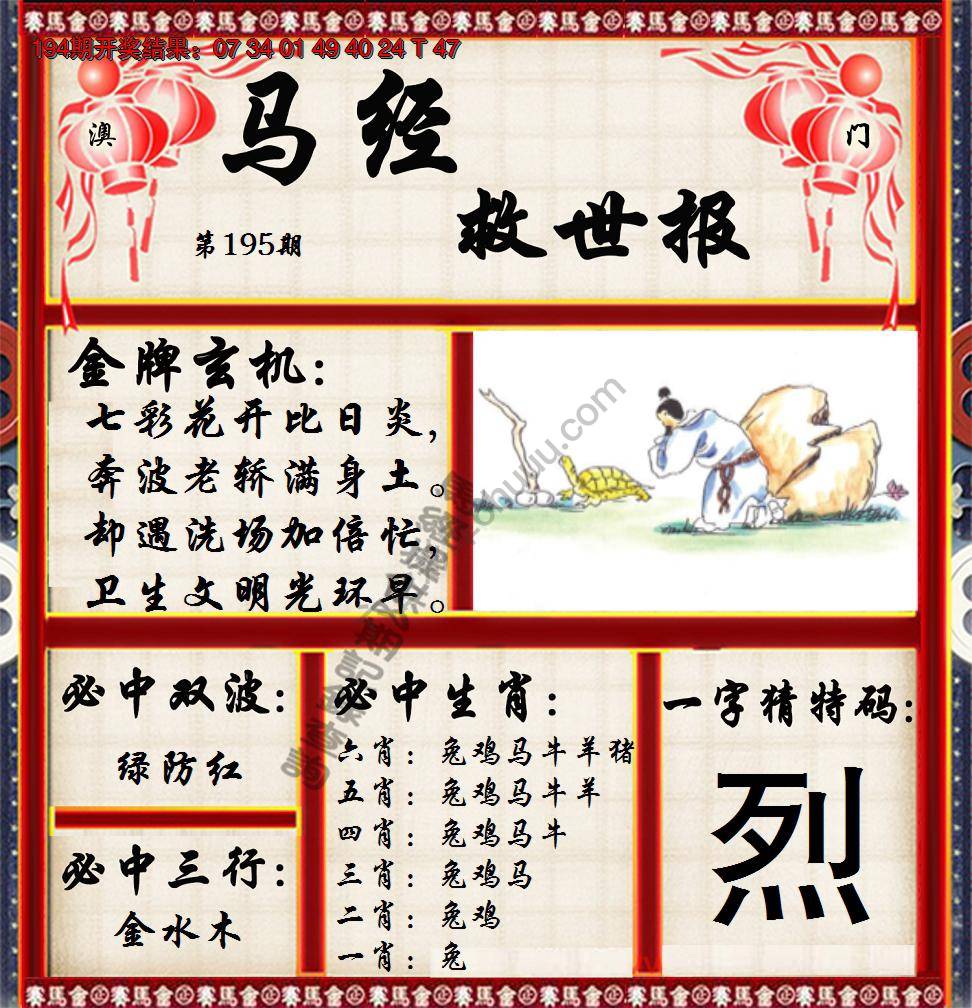 194期开奖结果：07 34 01 49 40 24 T 47
澳
门
马经
救世报
第195期
金牌玄机：
七彩花开比日炎，
奔波老轿满身土。
却遇洗场加倍忙，
卫生文明光环早。
必中双波：
绿防红
必中三行：
金水木
必中生肖：
六肖：兔鸡马牛羊猪
五肖：兔鸡马牛羊
四肖：兔鸡马牛
三肖：兔鸡马
二肖：兔鸡
一肖：兔
一字猜特码：
烈